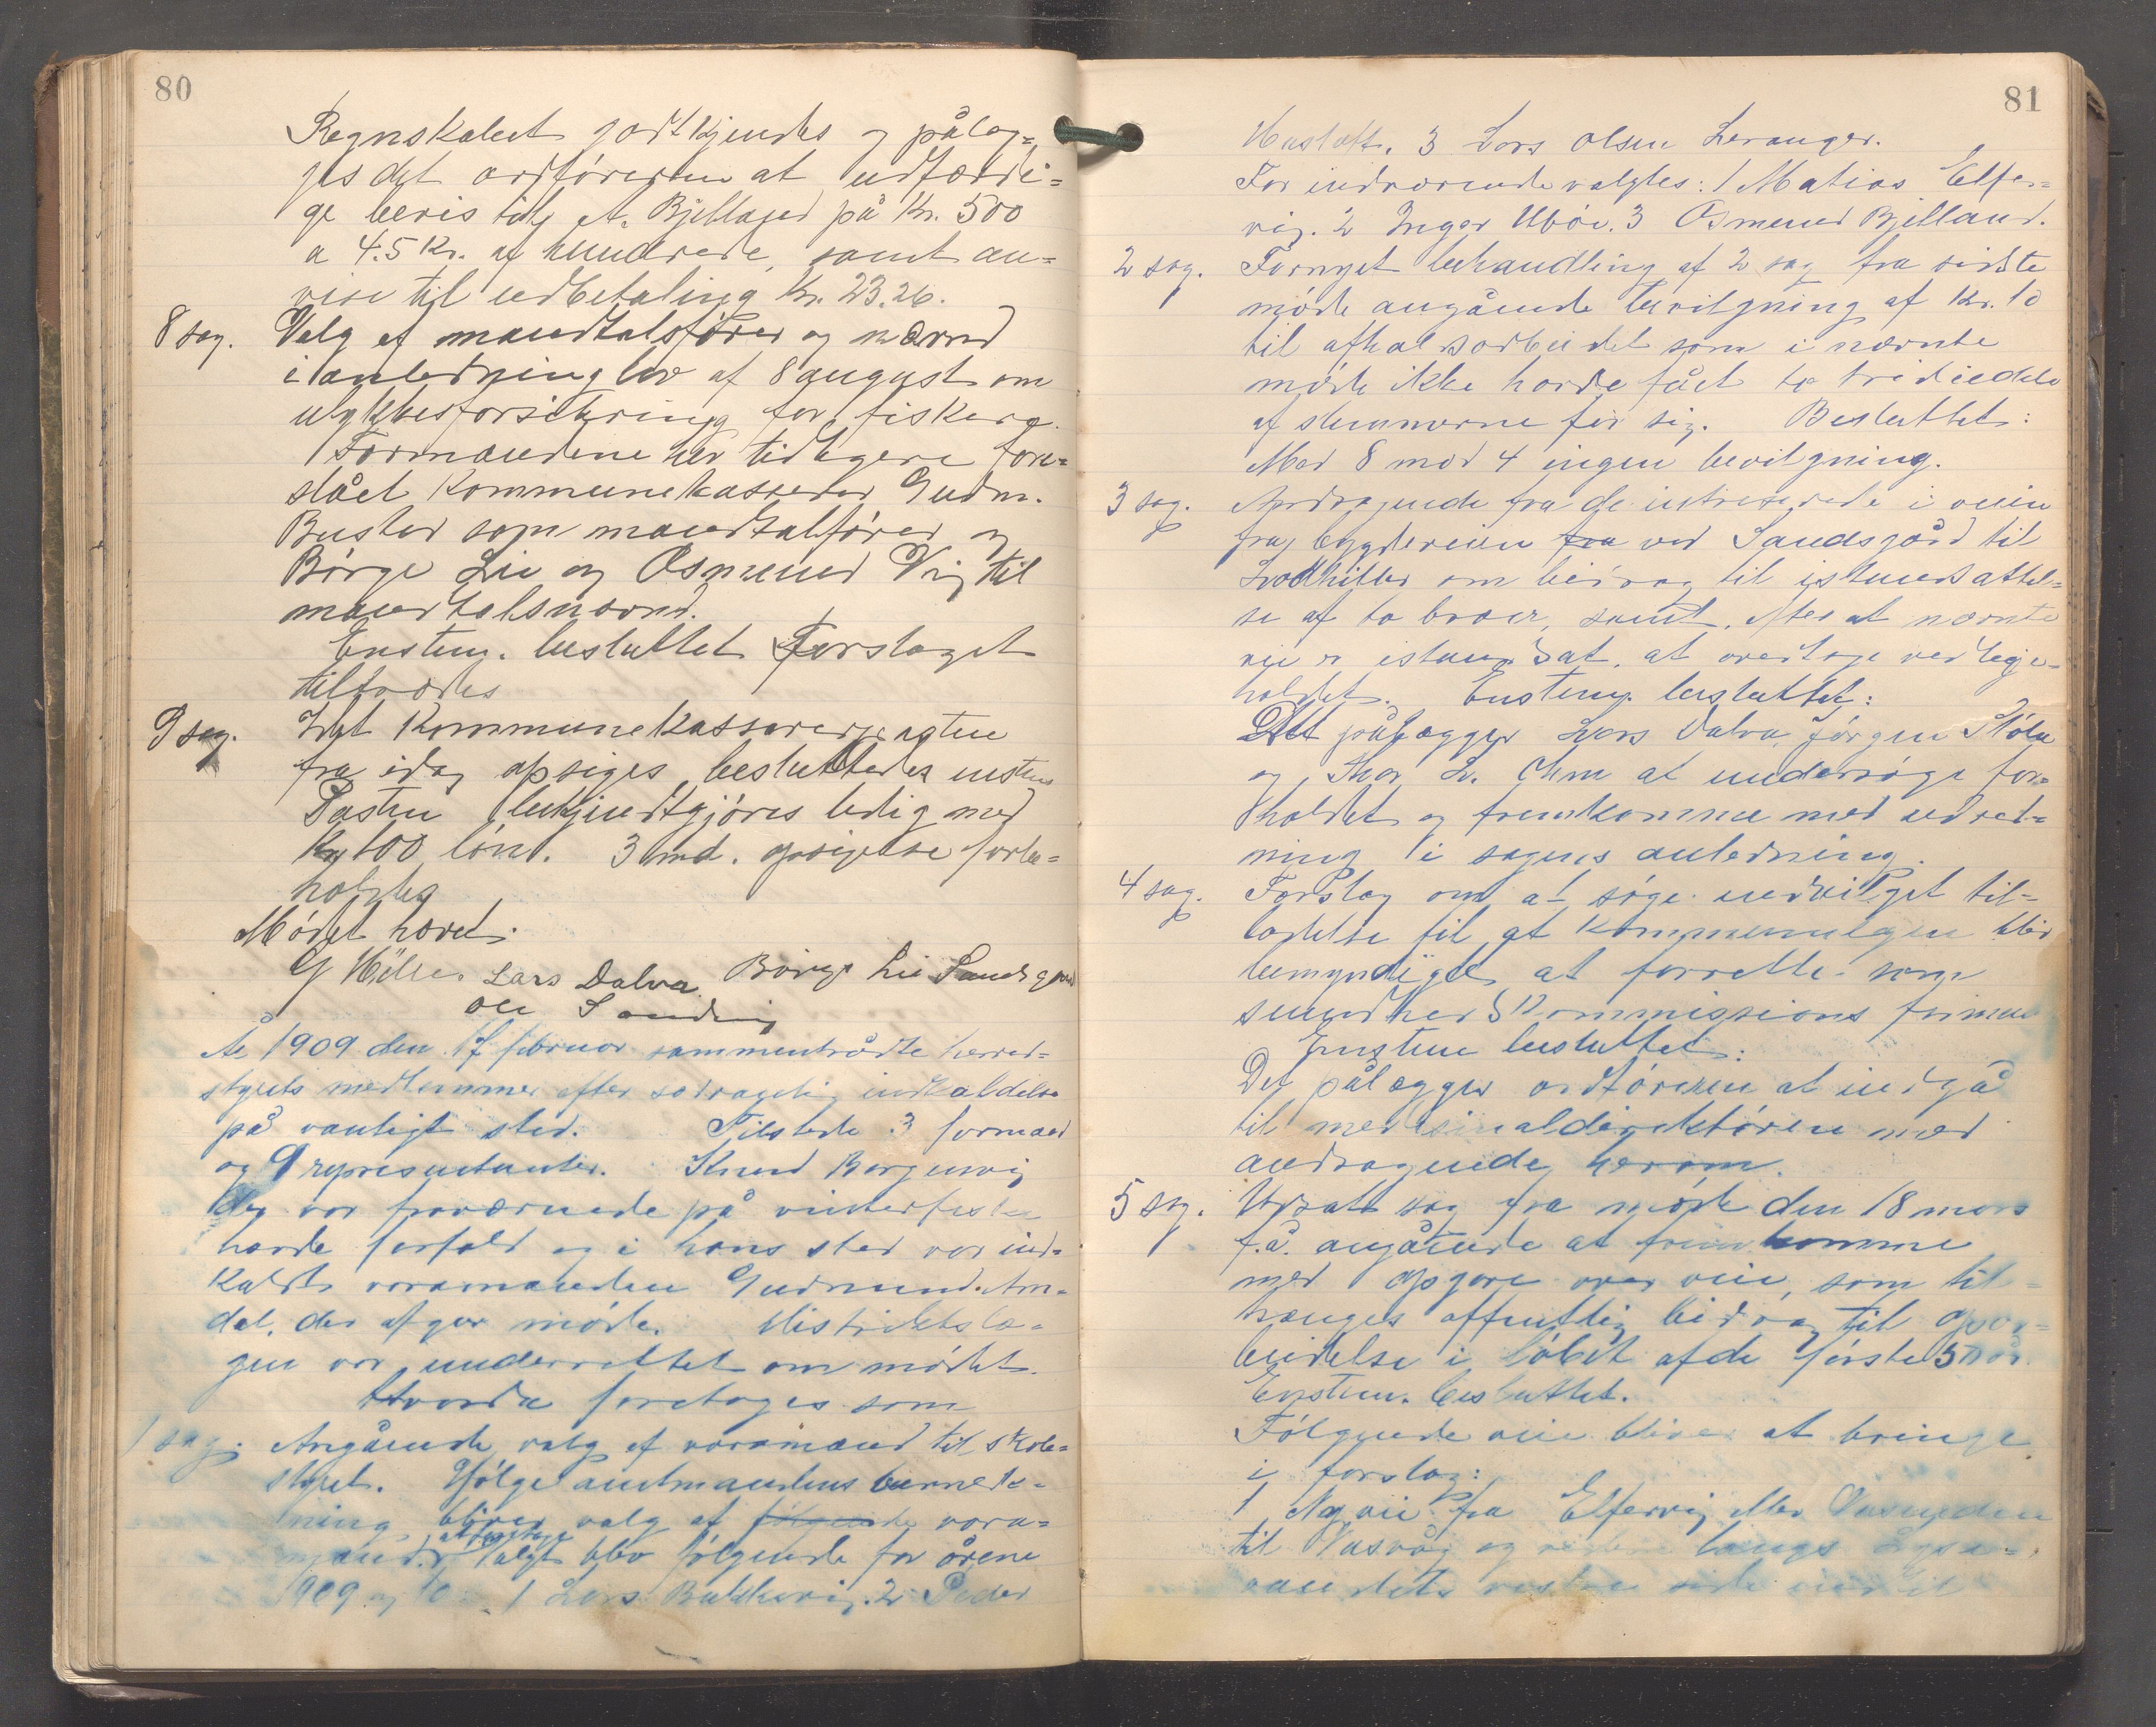 80
Regnskabet godtkjendes og pålæg=
ges det ordføreren at udfærdi=
ge bevis til A. Bjelland på Kr. 500
a 4.5 Kr. af hundrede, samt an=
vise til udbetaling Kr. 23.26.
8 sag. Valg af mandtalsfører og nævnd
i anledning lov af 8 august om
ulykkesforsikring for fiskere.
Formændene har tidligere fore=
slået Kommunekasserer Gudm.
som mandtalfører og
Børge Lie og Osmund Vig til
mandtalsnævnd.
Enstem. besluttet Forslaget
tiltrædes
9 sag. Lod Kommunekassererposten
fra idag opsiges besluttedes enstem
Posten bekjendtgjøres ledig med
Kr 100 løn. 3 md. opsigelse forbe=
holdes
Mødet hævet.
Lars Dalva Børge Lie Sandsgaard
Ole Sandvig
År 1909 den 17 februar sammentrådte herred=
styrets medlemmer efter sedvanlig indkaldelse
på vanligt sted. Tilstede 3 formænd
og 9 repræsentanter. Knud Borgenvig
der var fraværende på vinterfiske
havde forfald og i hans sted var ind=
kaldt varamanden Gudmund Am=
dal, der afgav møde. Distriktslæ=
gen var underrettet om mødet.
Hvorda foretoges som
1 sag. Angående valg af varamænd til skole=
styret. Ifølge amtmandens bemerk=
ning bliver valg af følgende vara=
mænd at foretage Valgt blev følgende for årene
1909 og 10. 1 Lars Bukkevig. 2 Peder
81
3 Lars Olsen Leranger.
For indværende valgtes: 1 Matias Elfer=
vig. 2 Inger Ubøe. 3 Osmund Bjelland.
2 sag. Fornyet behandling af 2 sag fra sidste
møde angående bevilgning af Kr. 10
til afholdsarbeidet som i nævnte
møde ikke havde fået to trediedele
af stemmerne for sig. Besluttet:
Med 8 mod 4 ingen bevilgning.
3 sag. Andragende fra de intreserede i veien
fra bygdeveien fra ved Sandsgård til
om bidrag til istandsættel=
se af to broer, samt, efter at nævnte
vei er istandsat, at overtage vedlige=
holdet. Enstem. besluttet:
Det pålægges Lars Dalva, Jørgen Støle
og Thor L. at undersøge for=
holdet og fremkomme med udred=
ning i sagens anledning.
4 sag. Forslag om at søge udvirket til=
ladelse til at Kommunelægen blir
bemyndiget at forrette som
sundhedskommissions formand
Enstem besluttet:
Det pålægges ordføreren at indgå
til medisinaldirektøren med
andragende herom.
5 sag. Udsatt sag fra møde den 18 mars
f.å. angående at fremkomme
med opgave over veie, som til=
trænges offentlig bidrag til opar=
beidelse i løbet af de første 5 år.
Enstem. besluttet.
Følgende veie bliver at bringe
i forslag:
1 Ny vei fra Elfervig eller
til Vasvåg og videre langs
vandets vestre side